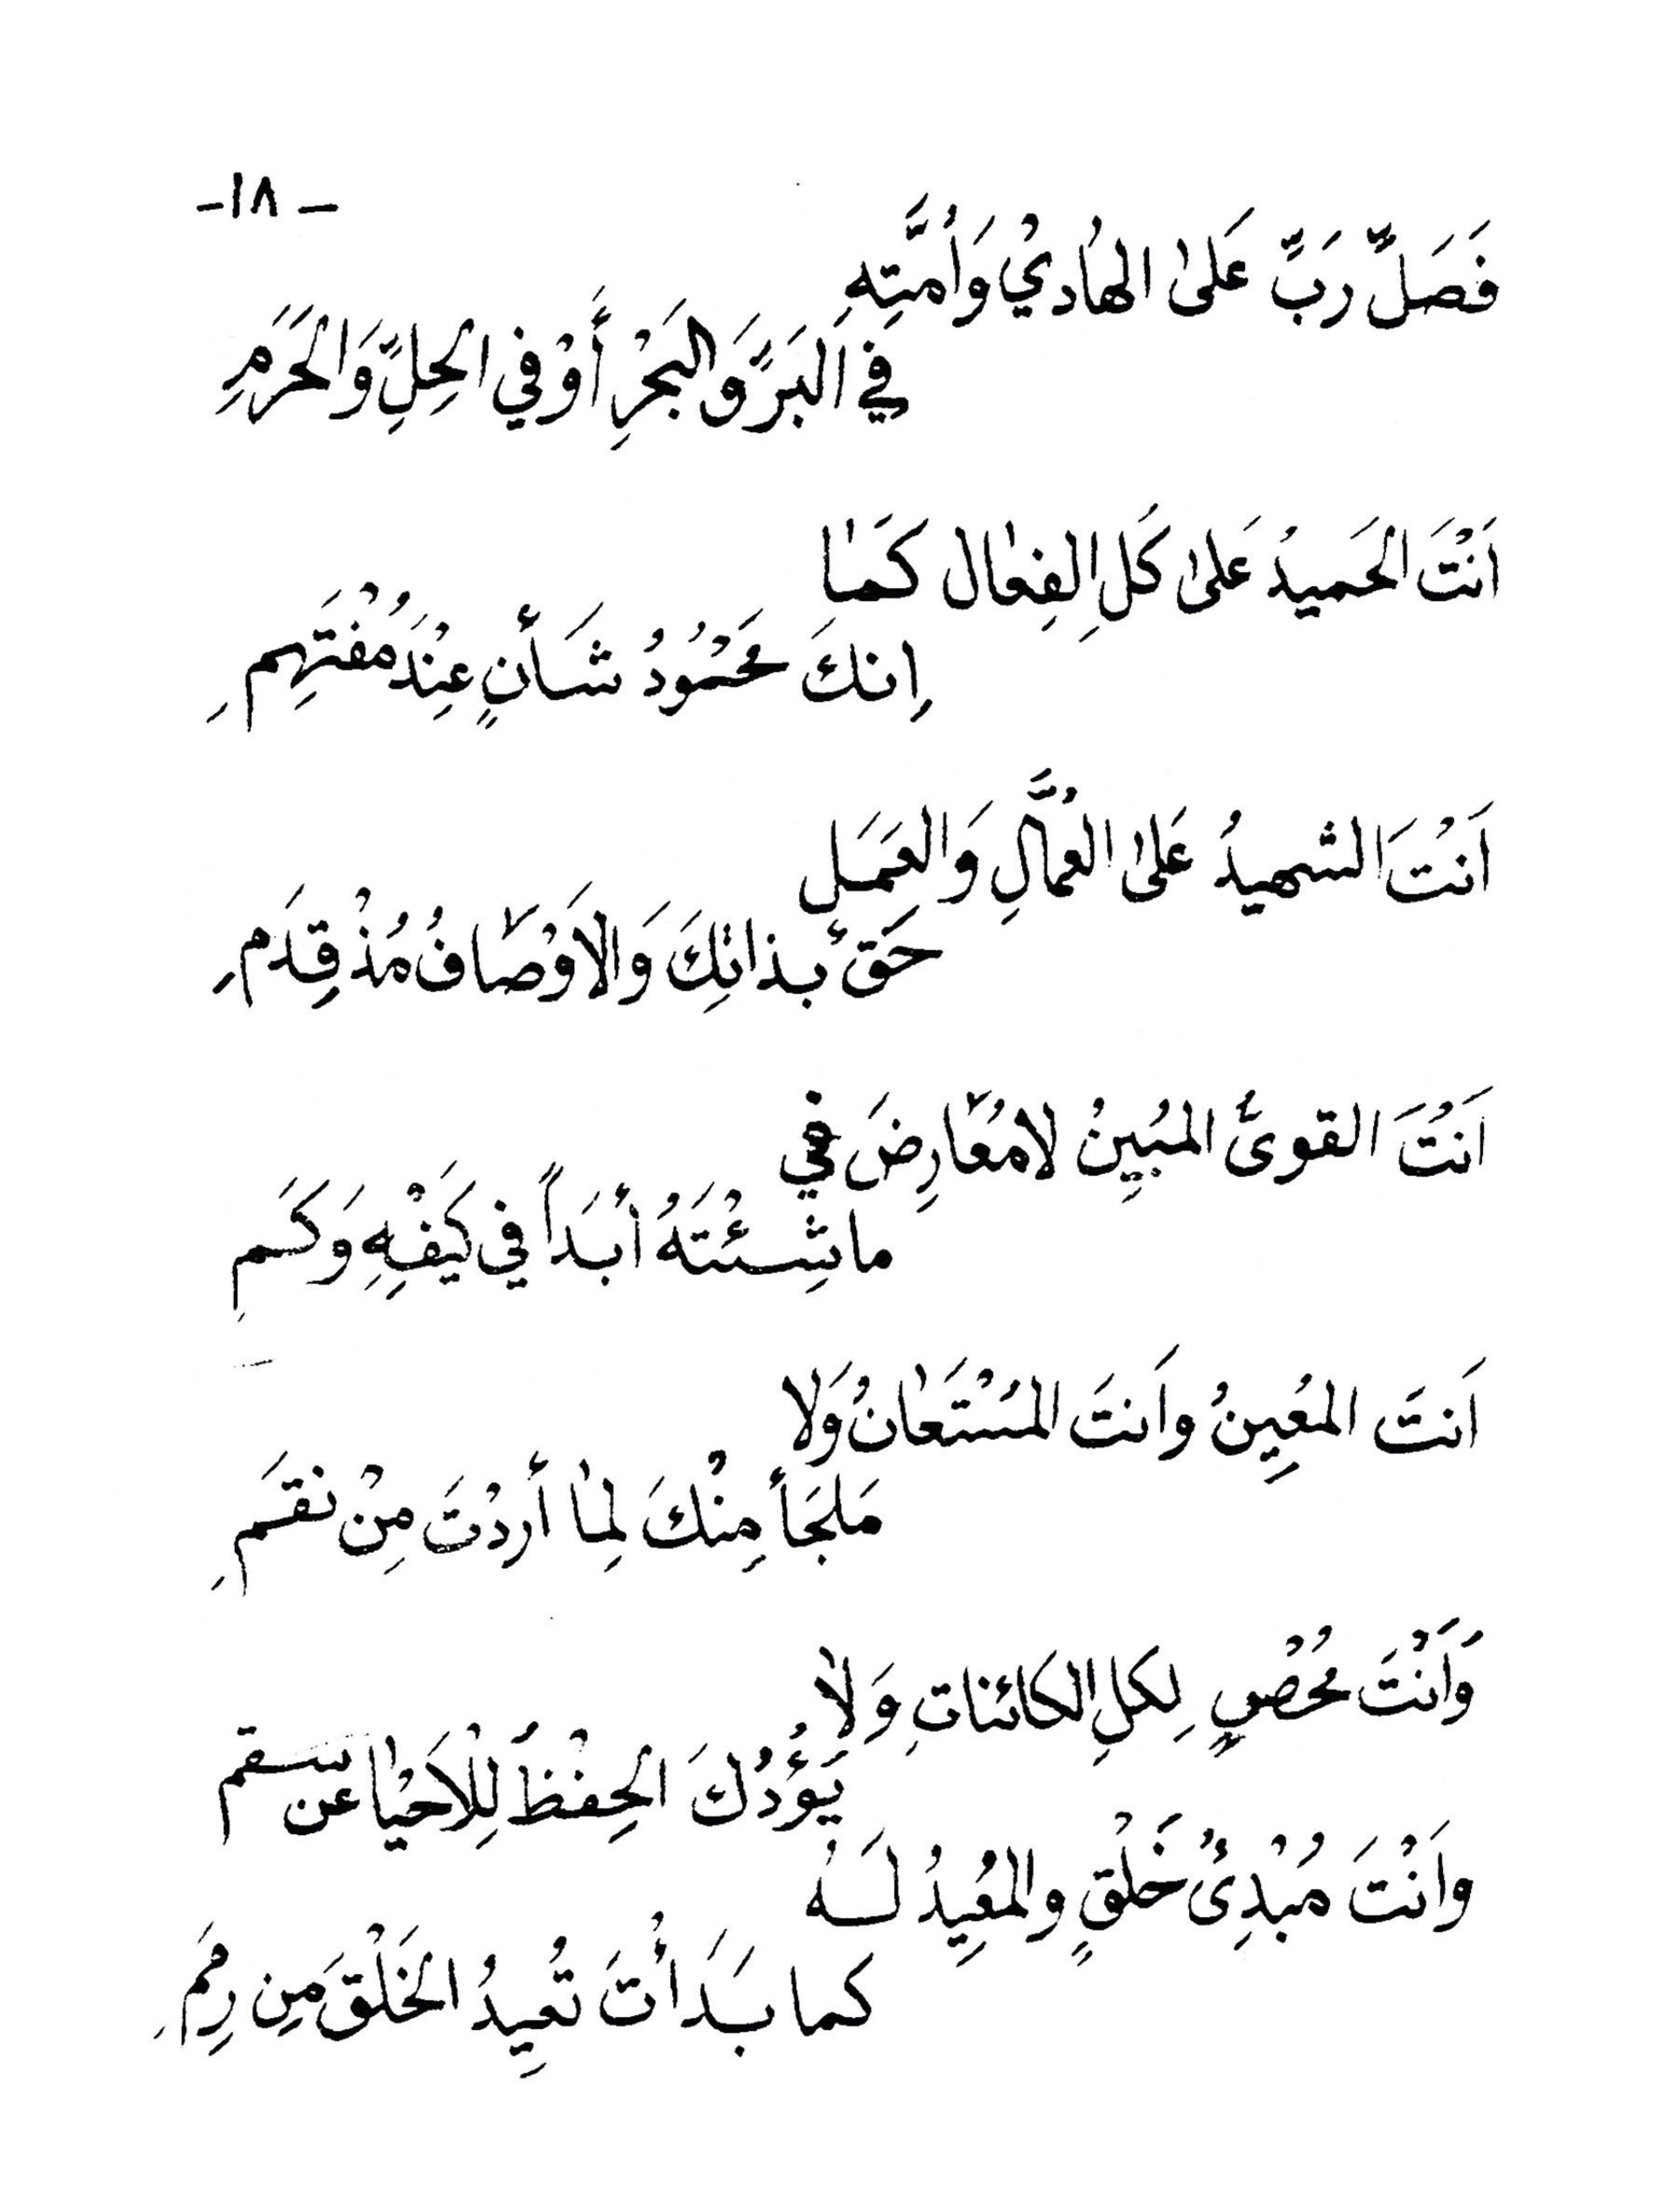 - ١٨ -
فَصَلِّ رَبِّ عَلىٰ الهَادِيْ وَاُمَّتِهِ
فِي البَرِّ وَالبَحْرِ أَوْ فِي الحِلِّ وَالحَرَمِ
اَنْتَ الحَمِيدُ عَلىٰ كُلِ الِفِعٰال كَمٰا
اِنكَ مَحْمُوُدُ شَأنٍ عِنْدَ مُفْتَهِمِ
اَنْتَ الشهيدُ عَلىٰ العُمَّالِ وَالعَمَلِ
حَقٌ بذاتِكَ وَالاَوْصَافُ مُذْ قِدَمِ
اَنْتَ القوىُّ المبُيِنُ لا مُعَارِضَ في
ما شِئْتَهُ أبَداً في كَيْفِهِ وَكَمِ
اَنتَ المعُيِنُ واَنتَ المسُتَعٰانُ وَلا
مَلجَأ مِنْكَ لِمٰا أردْتَ مِنْ نقَمِ
وَاَنْتَ مُحْصٍ لِكلِ الكائناتِ وَلاٰ
يَؤُدُكَ الحِفْظُ لِلْاَحْيٰا عن سقم
واَنْتَ مُبْدِئُ خَلْقٍ والمعُيِدُ لَهُ
كما بَدَأْتَ تُعِيدُ الخَلْقَ مِن رِمَمِ